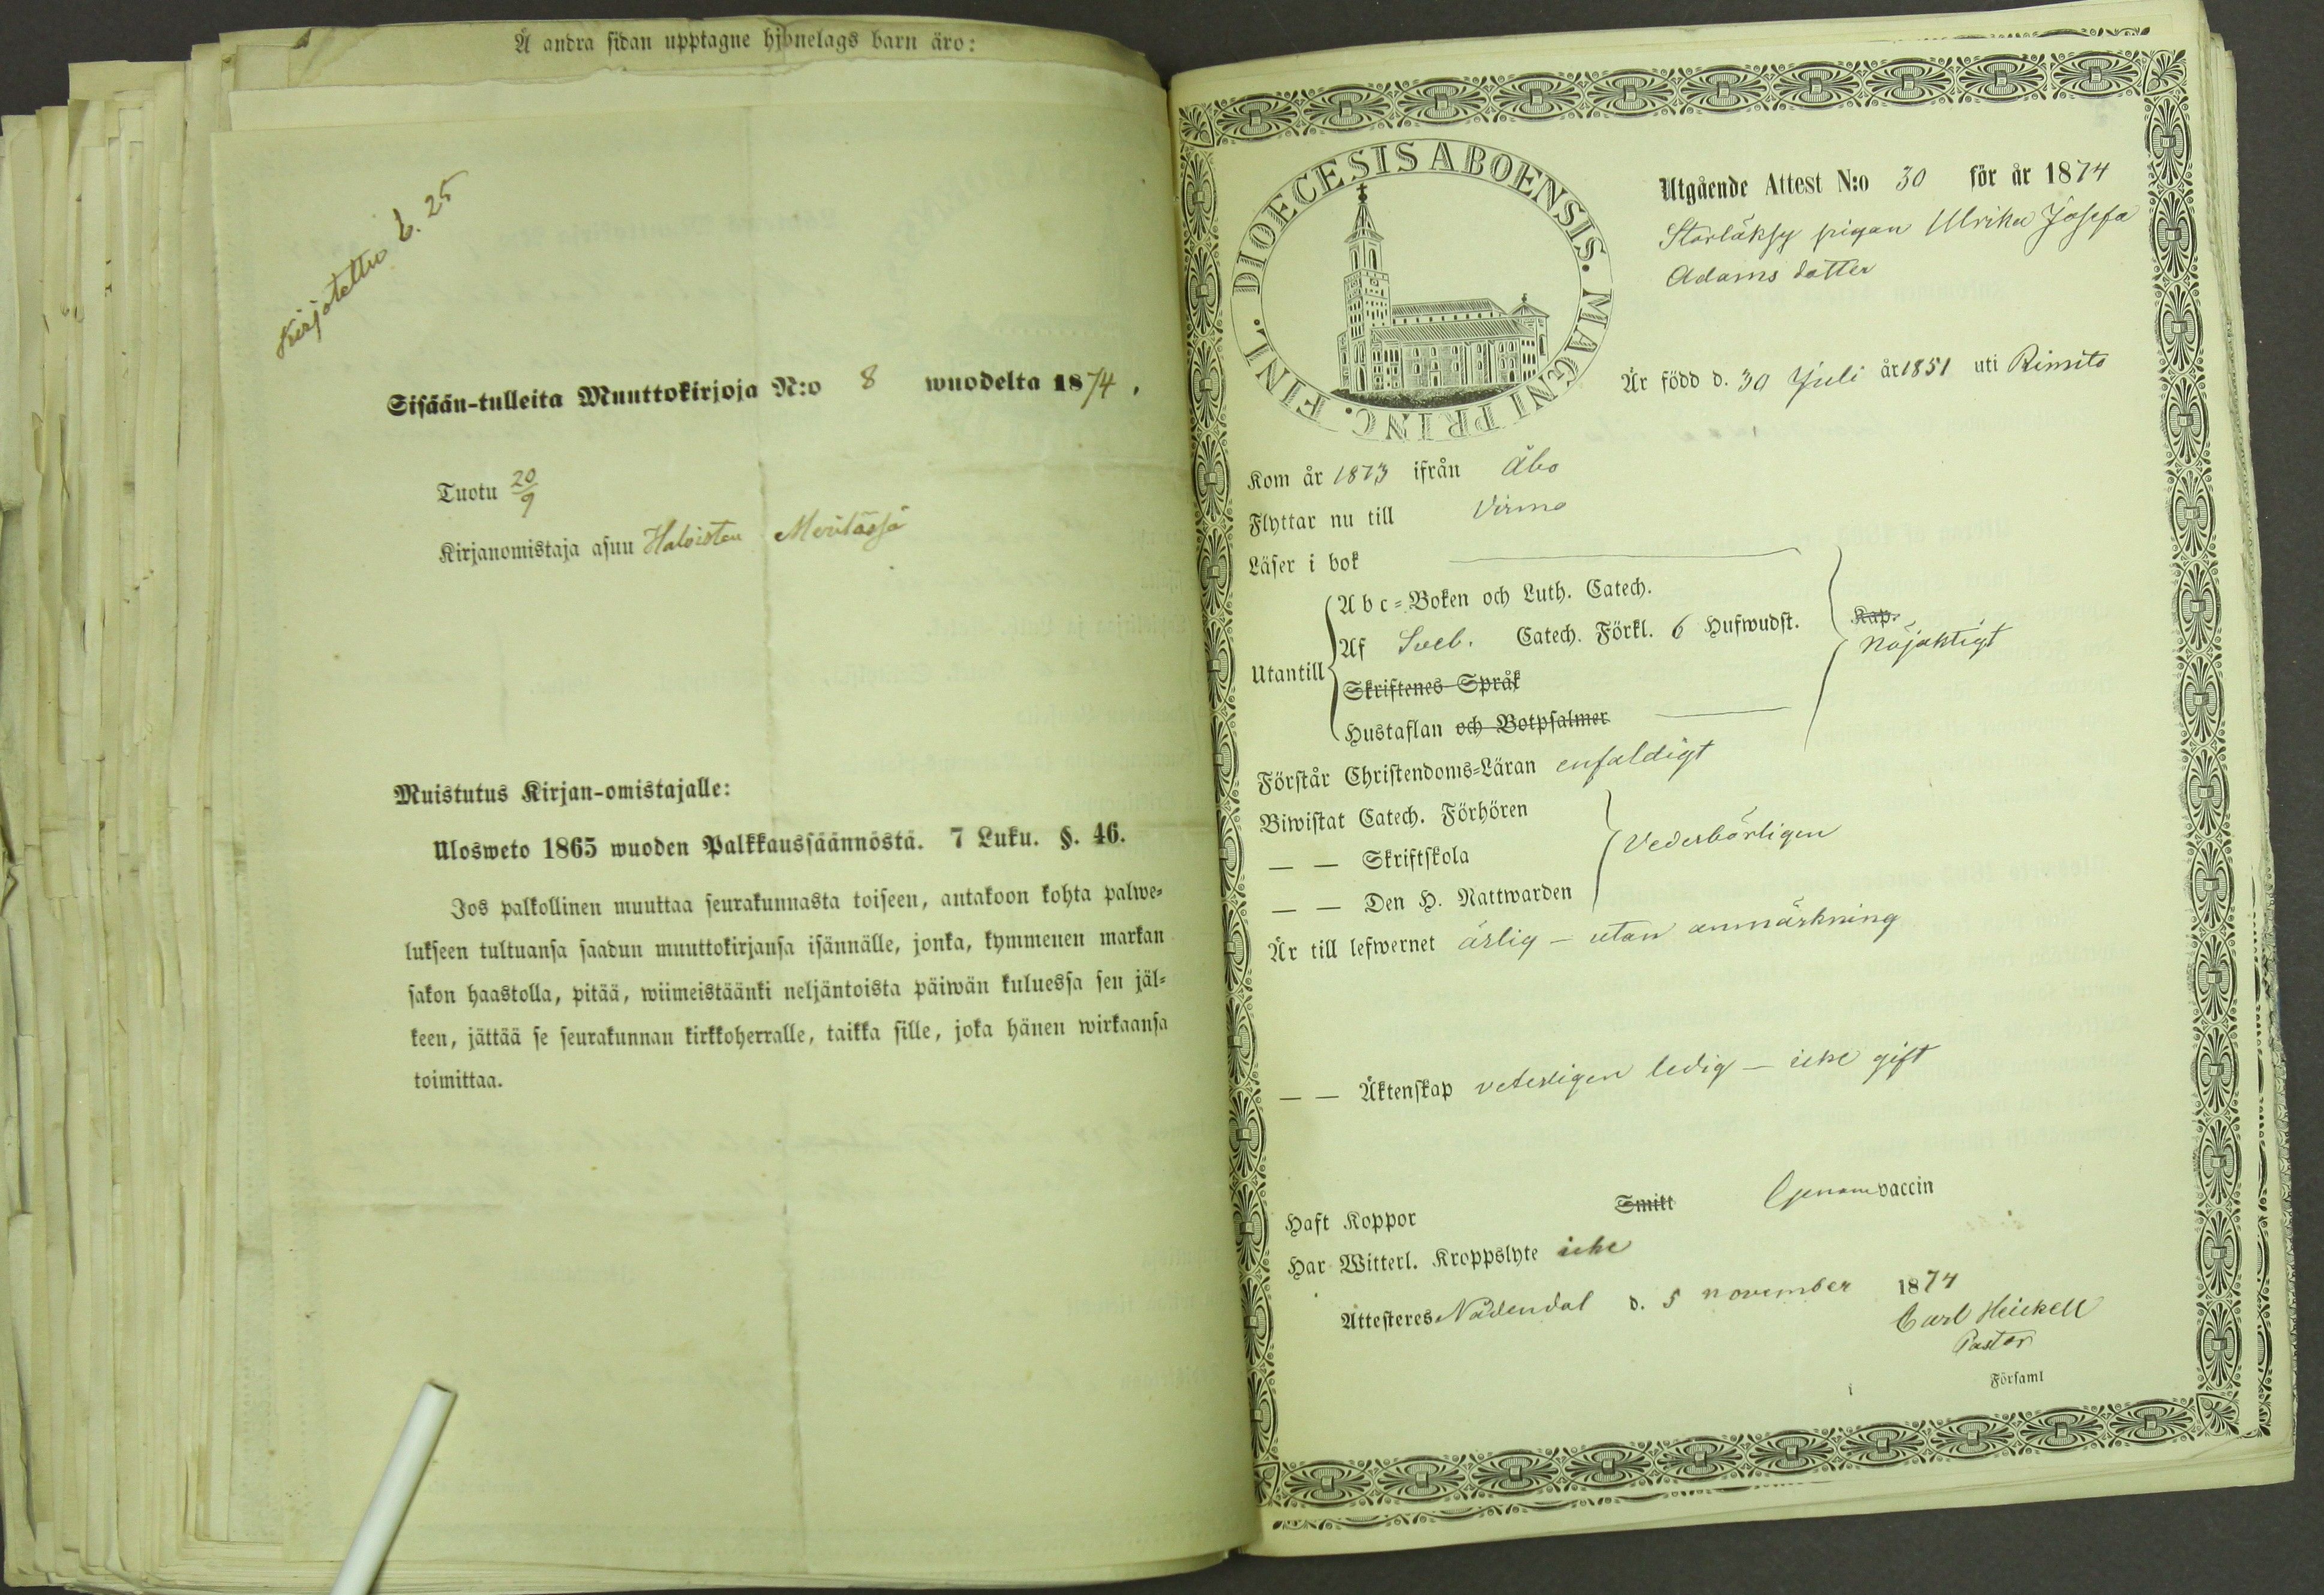 Å andra sidan upptagne hjonelags barn äro:
Kirjotettu 6. 25
Sisään-tulleita Muuttokirjoja N:o 8 wuodelta 1874.
Tuotu 20/9
Kirjanomistaja asuu Haloisten
Muistutus Kirjan-omistajalle:
Ulosweto 1865 wuoden Palkkaussäännöstä. 7 Luku. §. 46.
Jos palkollinen muuttaa seurakunnasta toiseen, antakoon kohta palwe-
lukseen tultuansa saadun muuttokirjansa isännälle, jonka, kymmenen markan
sakon haastolla, pitää, wiimeistäänki neljäntoista päiwän kuluessa sen jäl-
keen, jättää se seurakunnan kirkkoherralle, taikka sille, joka hänen wirkaansa
toimittaa.
DIOECESIS ABOENSIS. MAGNI PRINC. FINL.
Utgående Attest N:o 30 för år 1874
pigan Ulrika Josefa
Adams dotter
Är född d. 30 Juli år 1851 uti Rimito
Kom år 1873 ifrån Åbo
Flyttar nu till Virmo
Läser i bok
Utantill
Abc-Boken och Luth. Catech.
Af Sveb. Catech. Förkl. 6 Hufwudst.
Skriftenes Språk
Hustaflan och Botpsalmer
Kap.
nöjaktigt
Förstår Christendoms-Läran enfaldigt
Biwistat Catech. Förhören
— — Skriftskola
— — Den H. Nattwarden
Vederbörligen
Är till lefwernet ärlig – utan anmärkning
— — Äktenskap veterligen ledig – icke gift
Haft Koppor Smitt Genom vaccin
Har Witterl. Kroppslyte icke
Attesteres Nådendal d. 5 november 1874
Carl Heickell
Pastor
i Församl